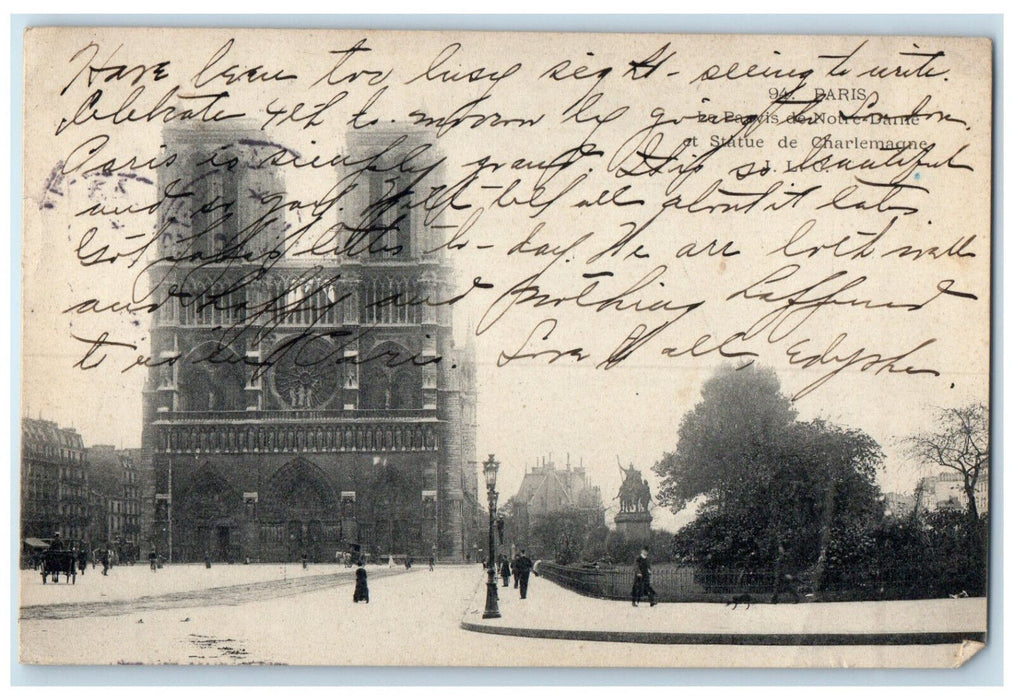 Have been too busy sight-seeing to write.
94. PARIS
Celebrate 4th to-morrow by going to London.
Le Parvis de Notre-Dame
et Statue de Charlemagne
Paris is simply grand. It is so beautiful
J. L. C.
and so gay. Will tell all about it later.
Got letters to-day. We are both well
and happy and nothing happened
to us in Paris. Love to all, Edyphe.